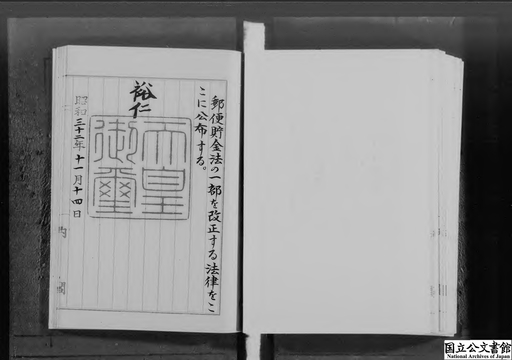 郵便貯金法の一部を改正する法律をこ
こに公布する。
裕仁
天皇
御璽
昭和三十二年十一月十四日
内閣
国立公文書館
National Archives of Japan